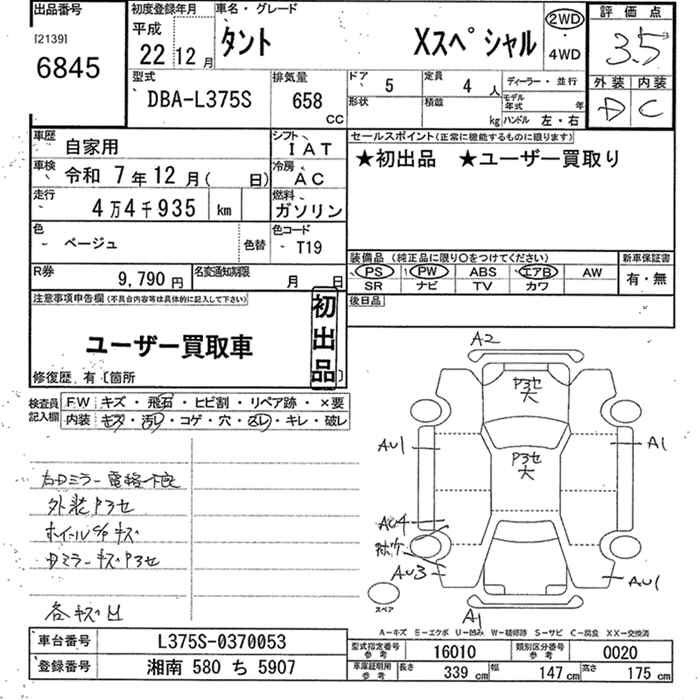 出品番号
[2139]
6845
初度登録年月
平成
22 12 月
車名・グレード
タント Xスペシャル
2WD
・
4WD
評価点
3.5
外装 内装
D C
型式
DBA-L375S
排気量
658
cc
ドア 5
定員 4 人
形状
積載 kg
ディーラー・並行
モデル年式 年
ハンドル 左・右
車歴 自家用
シフト IAT
車検 令和 7年12月( 日)
冷房 AC
走行 4万4千935 km
燃料 ガソリン
色 ベージュ 色替
色コード T19
R券 9,790 円
名変通知期限 月 日
セールスポイント(正常に機能するものに限ります)
★初出品 ★ユーザー買取り
装備品 (純正品に限り○をつけてください)
PS PW ABS エアB AW
SR ナビ TV カワ
新車保証書
有・無
後日品
注意事項申告欄(不具合内容等は具体的に記入して下さい)
ユーザー買取車
初出品
修復歴 有 [箇所 ]
検査員記入欄
F.W キズ・飛石・ヒビ割・リペア跡・×要
内装 キズ・汚レ・コゲ・穴・凹レ・キレ・破レ
右Dミラー電格不良
外装アヨセ
ホイールS/Pキズ
Dミラーキズアヨセ
各キズ凹
A2
アヨセ
大
AU1
A1
アヨセ
大
AU4
AU3
AU1
A1
スペア
A-キズ E-エクボ U-凹み W-補修跡 S-サビ C-腐食 XX-交換済
車台番号 L375S-0370053
登録番号 湘南 580 ち 5907
型式指定番号 参考 16010
類別区分番号 参考 0020
車庫証明用 参考 長さ 339 cm 幅 147 cm 高さ 175 cm